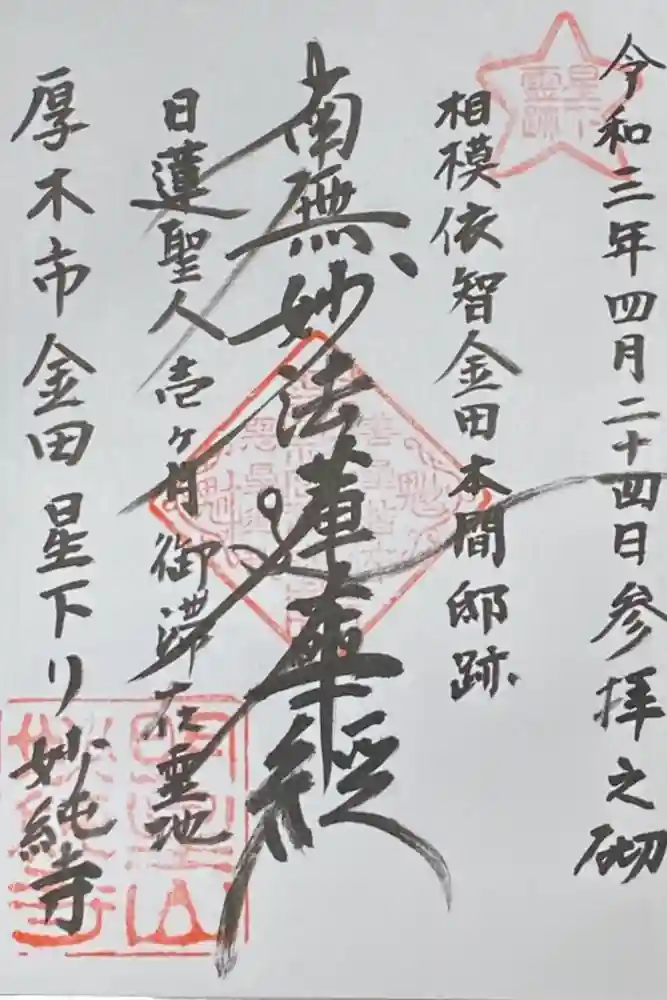 令和三年四月二十四日参拝之砌
星下
霊跡
相模依智金田本間邸跡
南無妙法蓮華經
日蓮聖人壱ヶ月御滞在霊地
厚木市金田星下り妙純寺